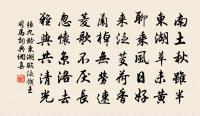 南土秋雖半
東湖草未黄
聊乘風日好
來泛芰荷香
蘭棹無勞速
菱歌不厭長
忽懷京洛去
難與共清光
張九齡東湖臨泛餞王
司馬詞典網